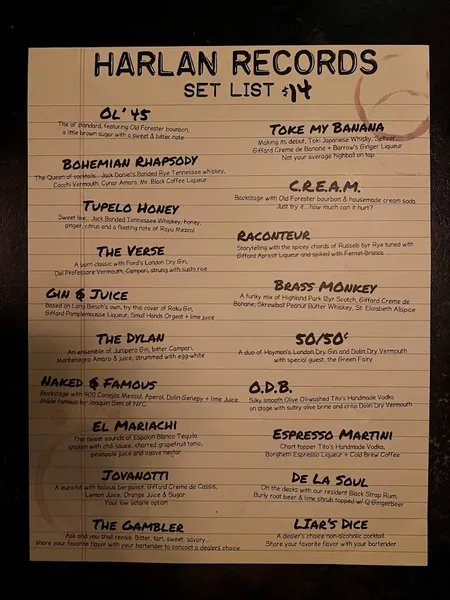 HARLAN RECORDS
SET LIST $14
OL' 45
The ol' standard, featuring Old Forester bourbon,
a little brown sugar with a sweet & bitter note
BOHEMIAN RHAPSODY
The Queen of cocktails. Jack Daniel's Bonded Rye Tennessee whiskey,
Cocchi Vermouth, Cynar Amaro, Mr. Black Coffee Liqueur
TUPELO HONEY
Sweet like... Jack Bonded Tennessee Whiskey, honey,
ginger, citrus and a floating note of Rayu Mezcal
THE VERSE
A barn classic with Ford's London Dry Gin,
Del Professore Vermouth, Campari, strung with sushi rice
GIN & JUICE
Based on Long Beach's own, try this cover of Roku Gin,
Giffard Pamplemousse Liqueur, Small Hands Orgeat + lime juice
THE DYLAN
An ensemble of Junipero Gin, bitter Campari,
Montenegro Amaro & juice, strummed with egg-white
NAKED & FAMOUS
Backstage with 400 Conejos Mezcal, Aperol, Dolin Genepy + lime Juice.
Made famous by Joaquin Simi of NYC
EL MARIACHI
The sweet sounds of Espolon Blanco Tequila
shaken with chili sauce, charred grapefruit tonic,
pineapple juice and agave nectar
JOVANOTTI
A euro-hit with Italicus bergamot, Giffard Creme de Cassis,
Lemon Juice, Orange Juice & Sugar
Your low octane option
THE GAMBLER
Ask and you shall receive. Bitter, tart, sweet, savory...
share your favorite flavor with your bartender to concoct a dealers choice
TOKE MY BANANA
Making its debut, Toki Japanese Whisky, Seltzer,
Giffard Creme de Banane + Barrow's Ginger Liqueur
Not your average highball on tap
C.R.E.A.M.
Backstage with Old Forester bourbon & housemade cream soda
Just try it... how much can it hurt?
RACONTEUR
Storytelling with the spicey chords of Russels 6yr Rye tuned with
Giffard Apricot Liqueur and spiked with Fernet-Branca
BRASS MONKEY
A funky mix of Highland Park 12yr Scotch, Giffard Creme de
Banane, Skrewball Peanut Butter Whiskey, St. Elizabeth Allspice
50/50¢
A duo of Hayman's London Dry Gin and Dolin Dry Vermouth
with special guest, the Green Fairy
O.D.B.
Silky smooth Olive Oil-washed Tito's Handmade Vodka
on stage with sultry olive brine and crisp Dolin Dry Vermouth
ESPRESSO MARTINI
Chart topper Tito's Handmade Vodka,
Borghetti Espresso Liqueur + Cold Brew Coffee
DE LA SOUL
On the decks with our resident Black Strap Rum,
Burly root beer & lime shrub topped w/ Q Gingerbeer
LIAR'S DICE
A dealer's choice non-alcoholic cocktail
Share your favorite flavor with your bartender